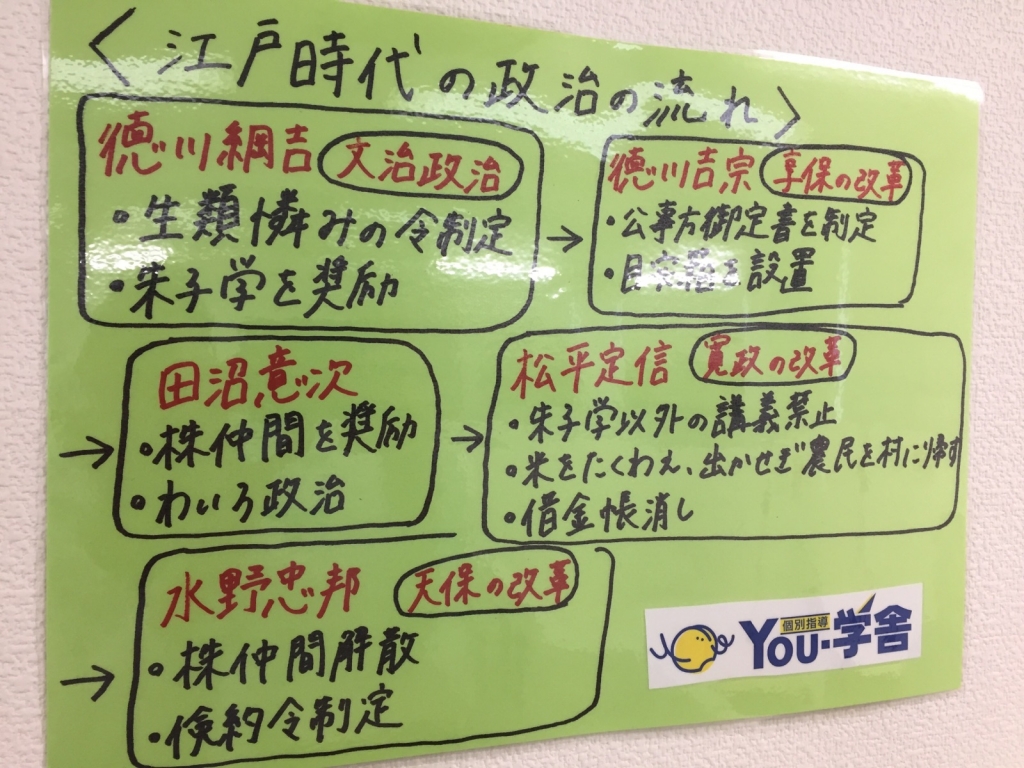 〈江戸時代の政治の流れ〉
徳川綱吉 文治政治
・生類憐みの令制定
・朱子学を奨励
→
徳川吉宗 享保の改革
・公事方御定書を制定
・目安箱を設置
→
田沼意次
・株仲間を奨励
・わいろ政治
→
松平定信 寛政の改革
・朱子学以外の講義禁止
・米をたくわえ、出かせぎ農民を村に帰す
・借金帳消し
→
水野忠邦 天保の改革
・株仲間解散
・倹約令制定
個別指導
You・学舎